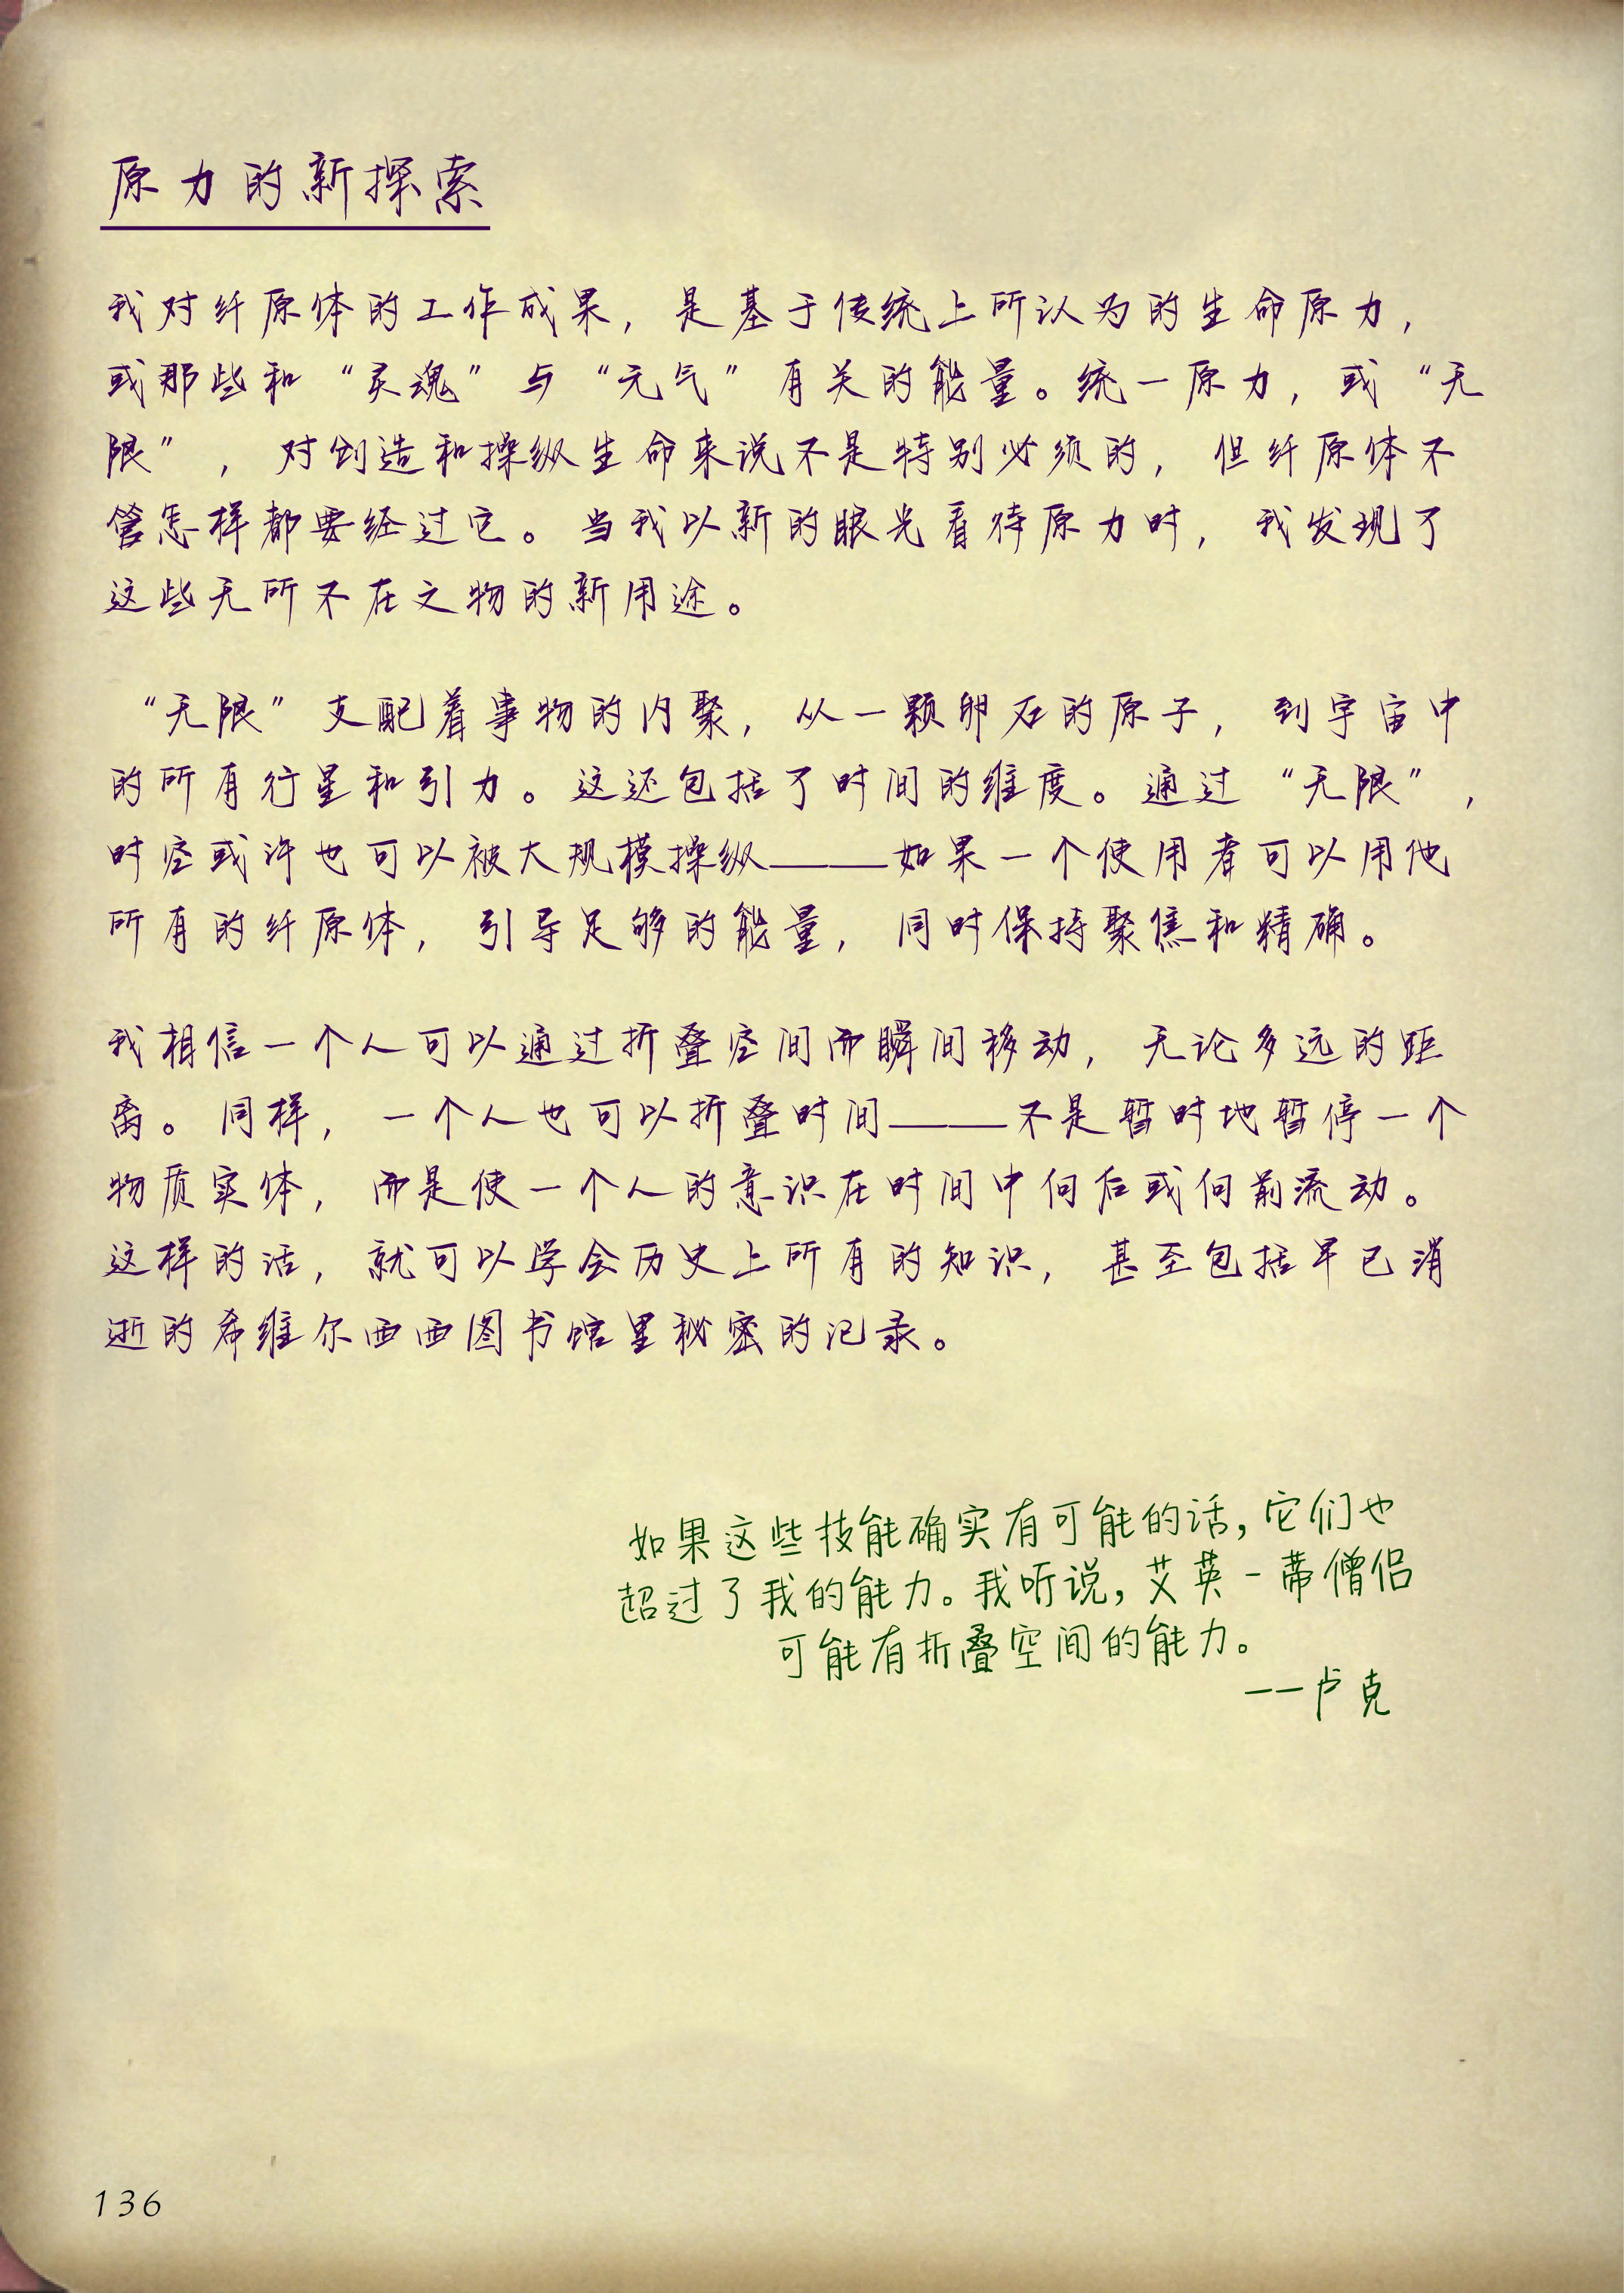 原力的新探索
我对纤原体的工作成果，是基于传统上所认为的生命原力，
或那些和“灵魂”与“元气”有关的能量。统一原力，或“无
限”，对创造和操纵生命来说不是特别必须的，但纤原体不
管怎样都要经过它。当我以新的眼光看待原力时，我发现了
这些无所不在之物的新用途。
“无限”支配着事物的内聚，从一颗卵石的原子，到宇宙中
的所有行星和引力。这还包括了时间的维度。通过“无限”，
时空或许也可以被大规模操纵——如果一个使用者可以用他
所有的纤原体，引导足够的能量，同时保持聚焦和精确。
我相信一个人可以通过折叠空间而瞬间移动，无论多远的距
离。同样，一个人也可以折叠时间——不是暂时地暂停一个
物质实体，而是使一个人的意识在时间中向后或向前流动。
这样的话，就可以学会历史上所有的知识，甚至包括早已消
逝的希维尔西西图书馆里秘密的记录。
如果这些技能确实有可能的话，它们也
超过了我的能力。我听说，艾英-蒂僧侣
可能有折叠空间的能力。
——卢克
136